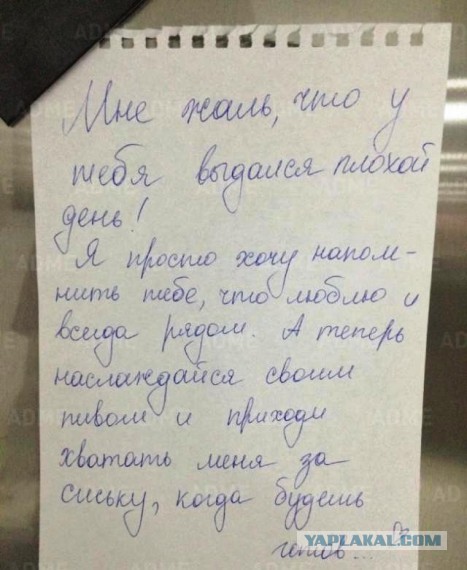 Мне жаль, что у
тебя выдался плохой
день!
Я просто хочу напом-
нить тебе, что люблю и
всегда рядом. А теперь
наслаждайся своим
пивом и приходи
хватать меня за
сиську, когда будешь
готов...
YAPLAKAL.COM